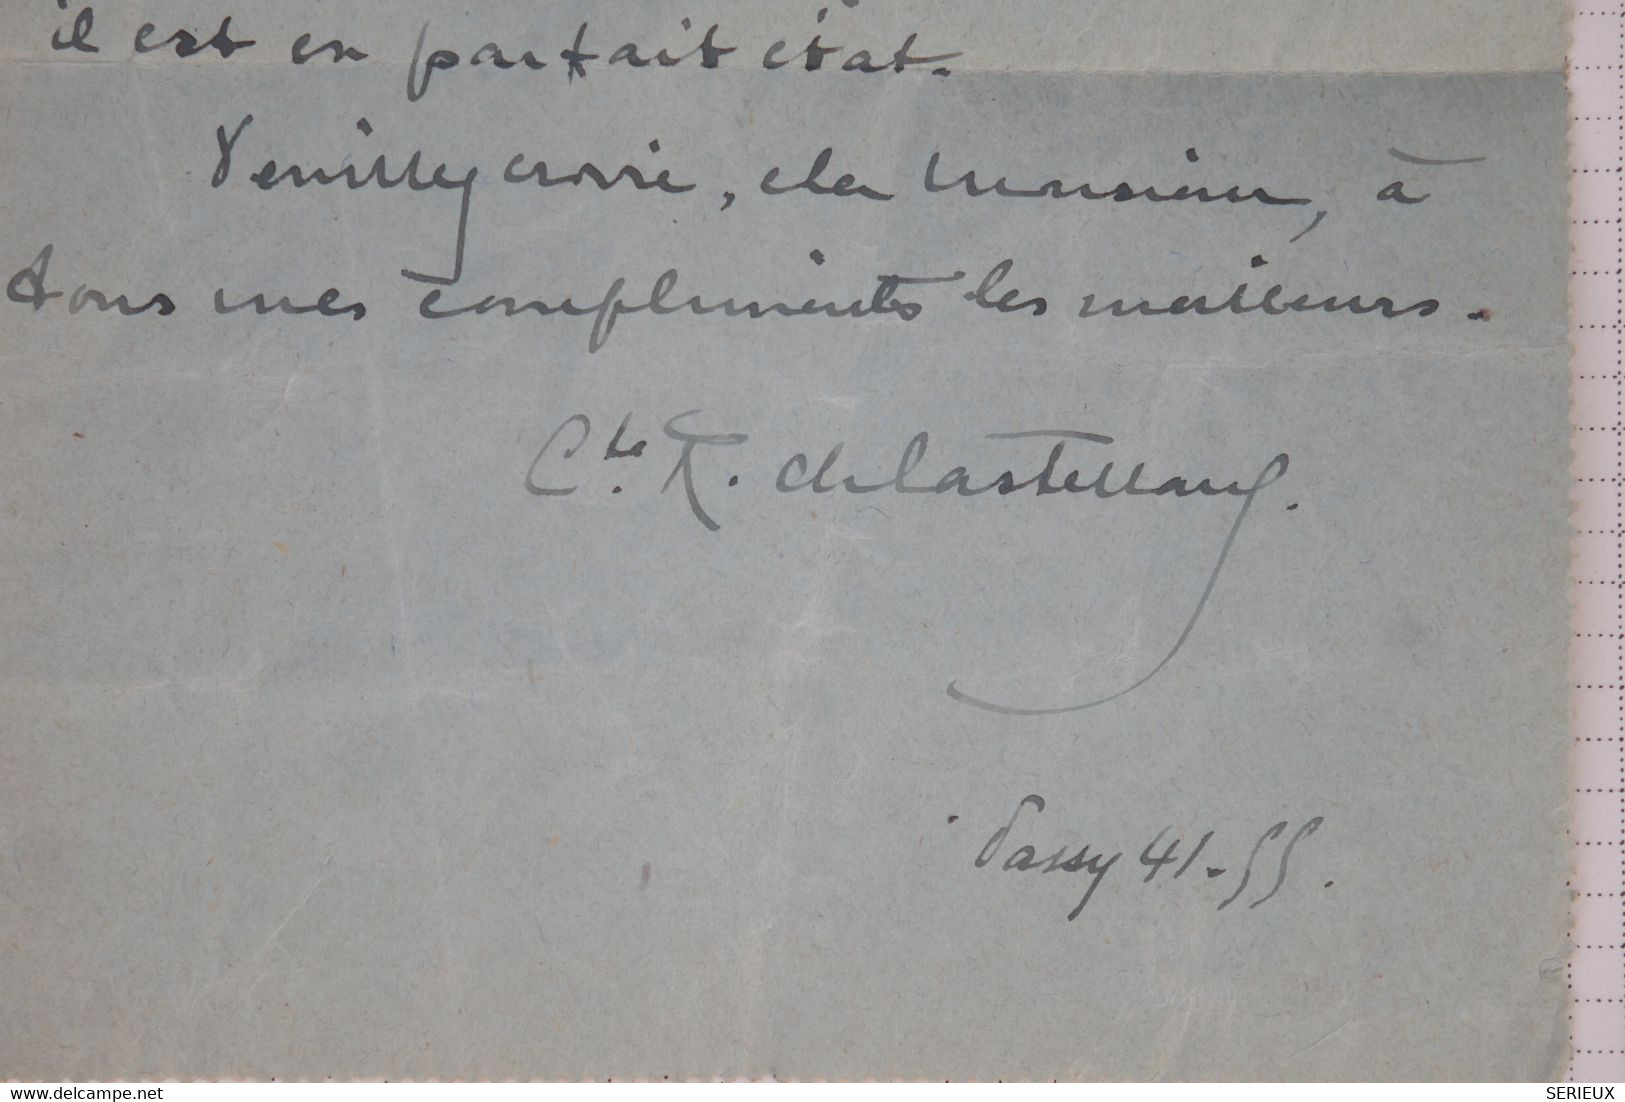 il est en parfait état.
Veuillez croire, cher Monsieur, à
tous mes compliments les meilleurs.
Cte. de Castellane.
Passy 41-55.
delcampe.net
SERIEUX